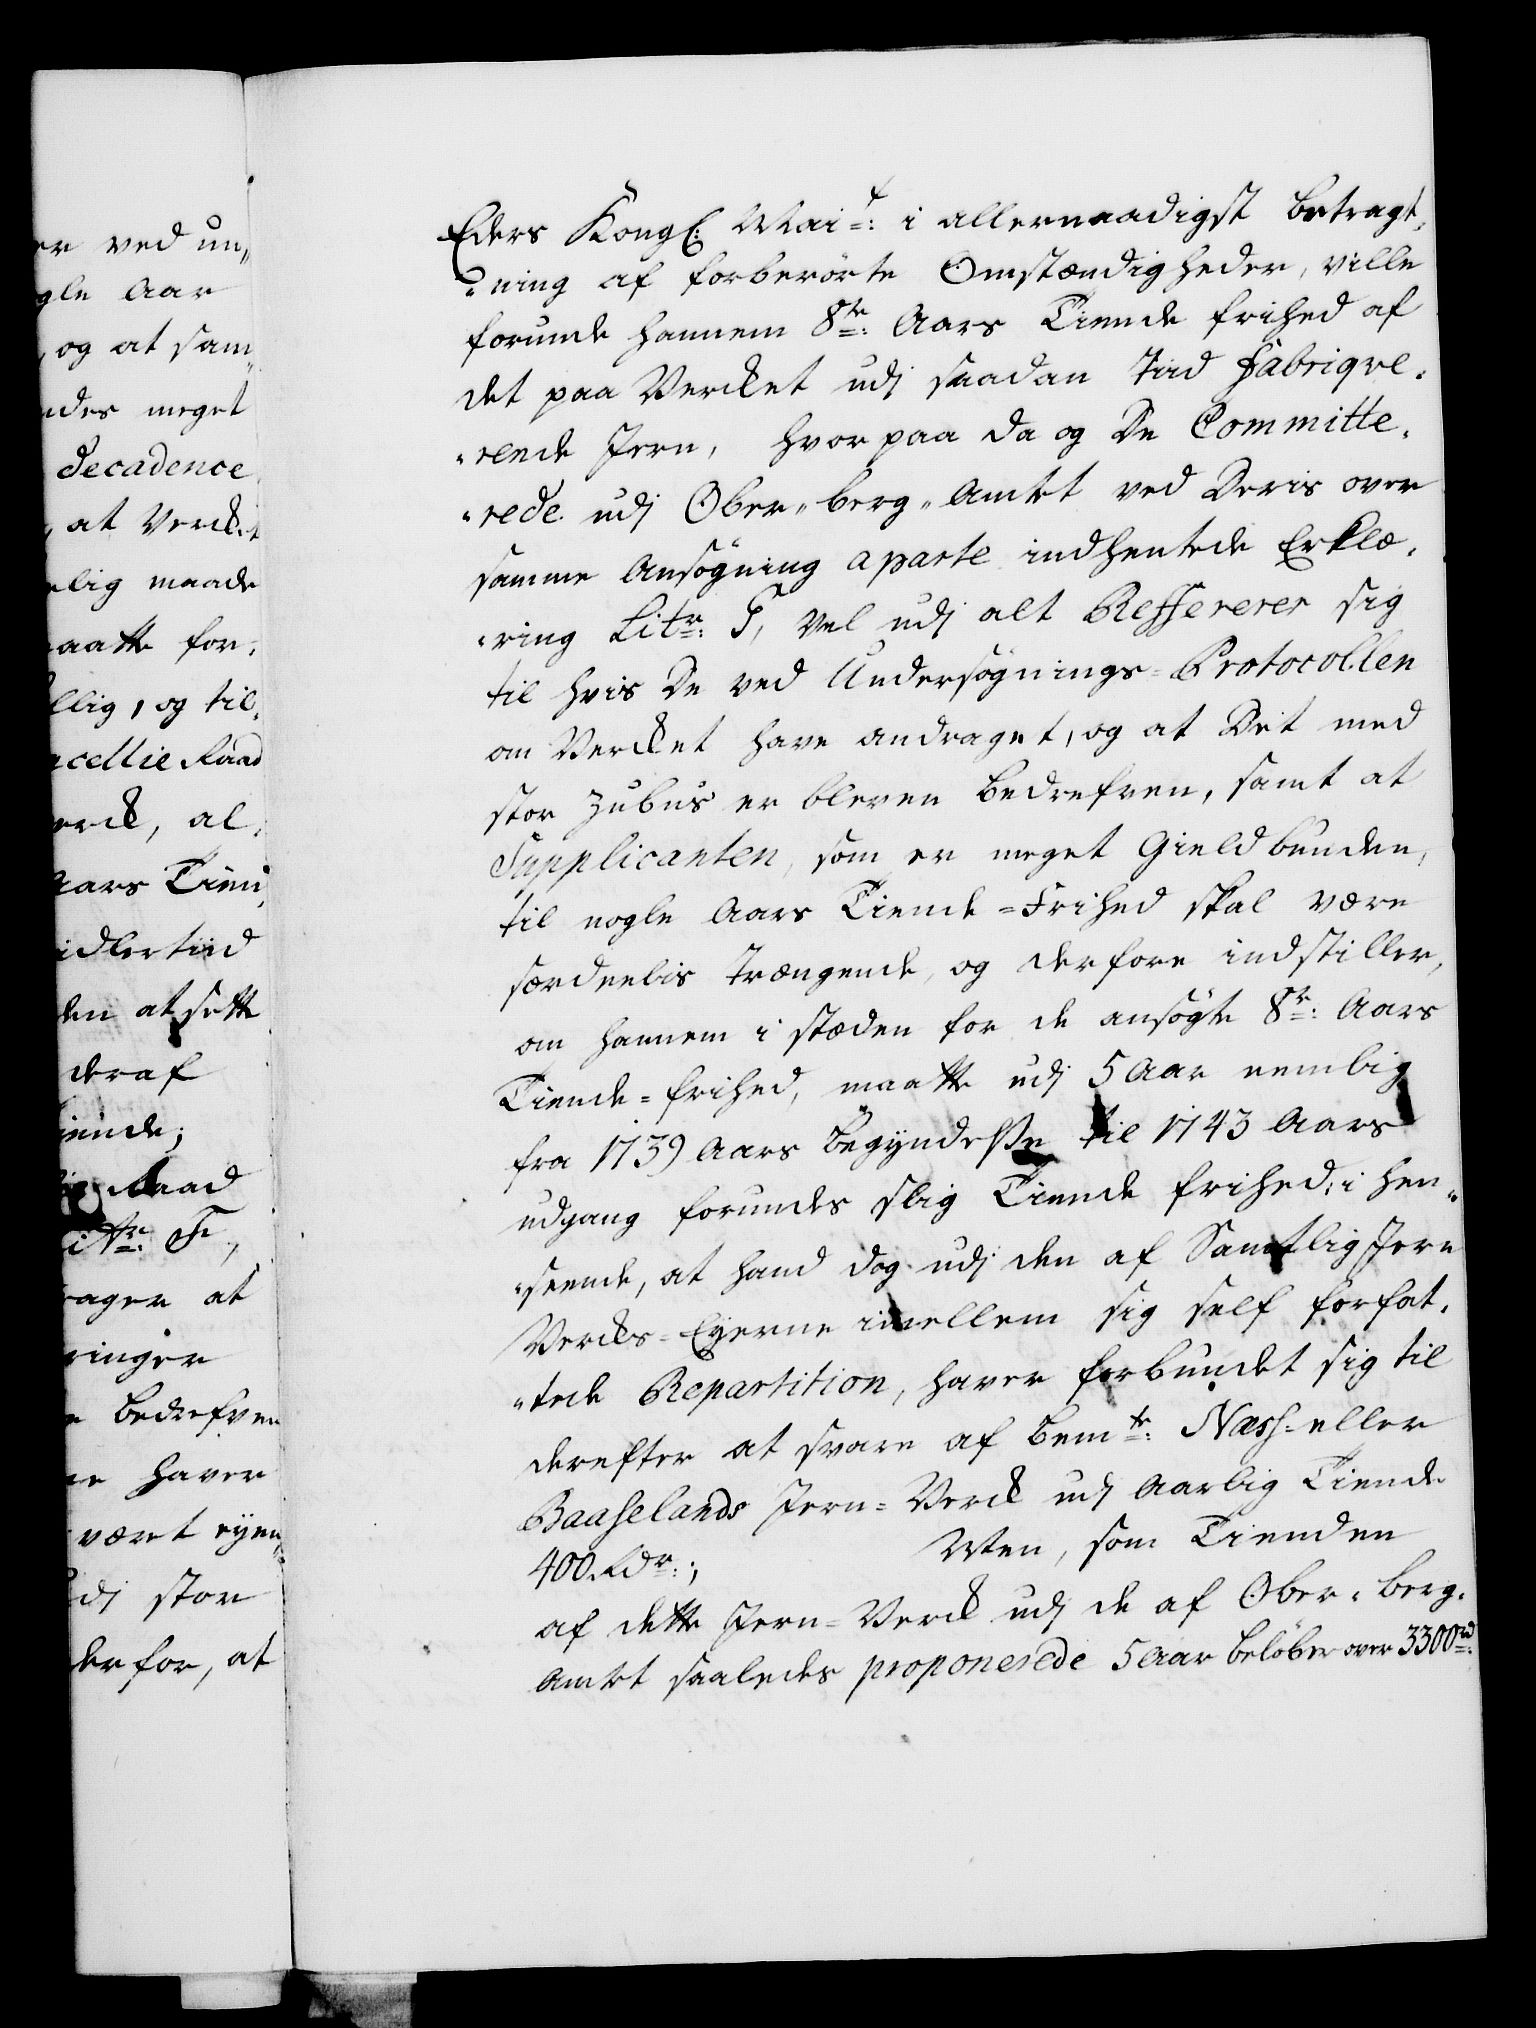 er ved un„
gle Aar
, og at sam„
ndes meget
decadence,
, at Verket
elig maade
aatte for„
llig, og til„
ncellie Raad
verck, al„
Aars Tien„
idlertiid
den at sette
deraf
iende;
Raad
Litr: F,
rager at
ringer
e bedrefven
ne haver
været eyen„
udj stor
derfor, at
Eders Kongl: Mait: i allernaadigst betragt„
„ning af forberørte Omstændigheder, ville
forunde hannem 8te: Aars Tiende frihed af
det paa Verket udj saadan Tiid Fabriqve„
„rende Jern, hvorpaa da og De Committe„
„rede udj Ober„berg„Amtet ved Deris over
samme Ansøgning aparte indhentede Erklæ„
„ring Litr: G, vel udj alt Reffererer sig
til hvis De ved Undersøgnings-Protocollen
om Verket have andraget, og at Det med
stor Zubus er bleven bedrefven, samt at
Supplicanten, som er meget Gieldbunden,
til nogle Aars Tiende-Frihed skal være
særdeelis trængende, og derfore indstiller,
om hannem i stæden for de ansøgte 8te: Aars
Tiende-frihed, maatte udj 5 Aar nemlig
fra 1739 Aars Begyndelse til 1743 Aars
udgang forundes slig Tiende frihed; i hen„
„seende, at hand dog udj den af Samtlig Jern
Vercks-Eyerne imellem sig self forfat„
„tede Repartition, haver forbundet sig til
derefter at svare af bemte: Næss-eller
Baaselands Jern-Verck udj Aarlig Tiende
400. Rdr:; Men, som Tienden
af dette Jern-Verck udj de af Ober„berg„
Amtet saaledes proponerede 5 Aar beløber over 3300rd: